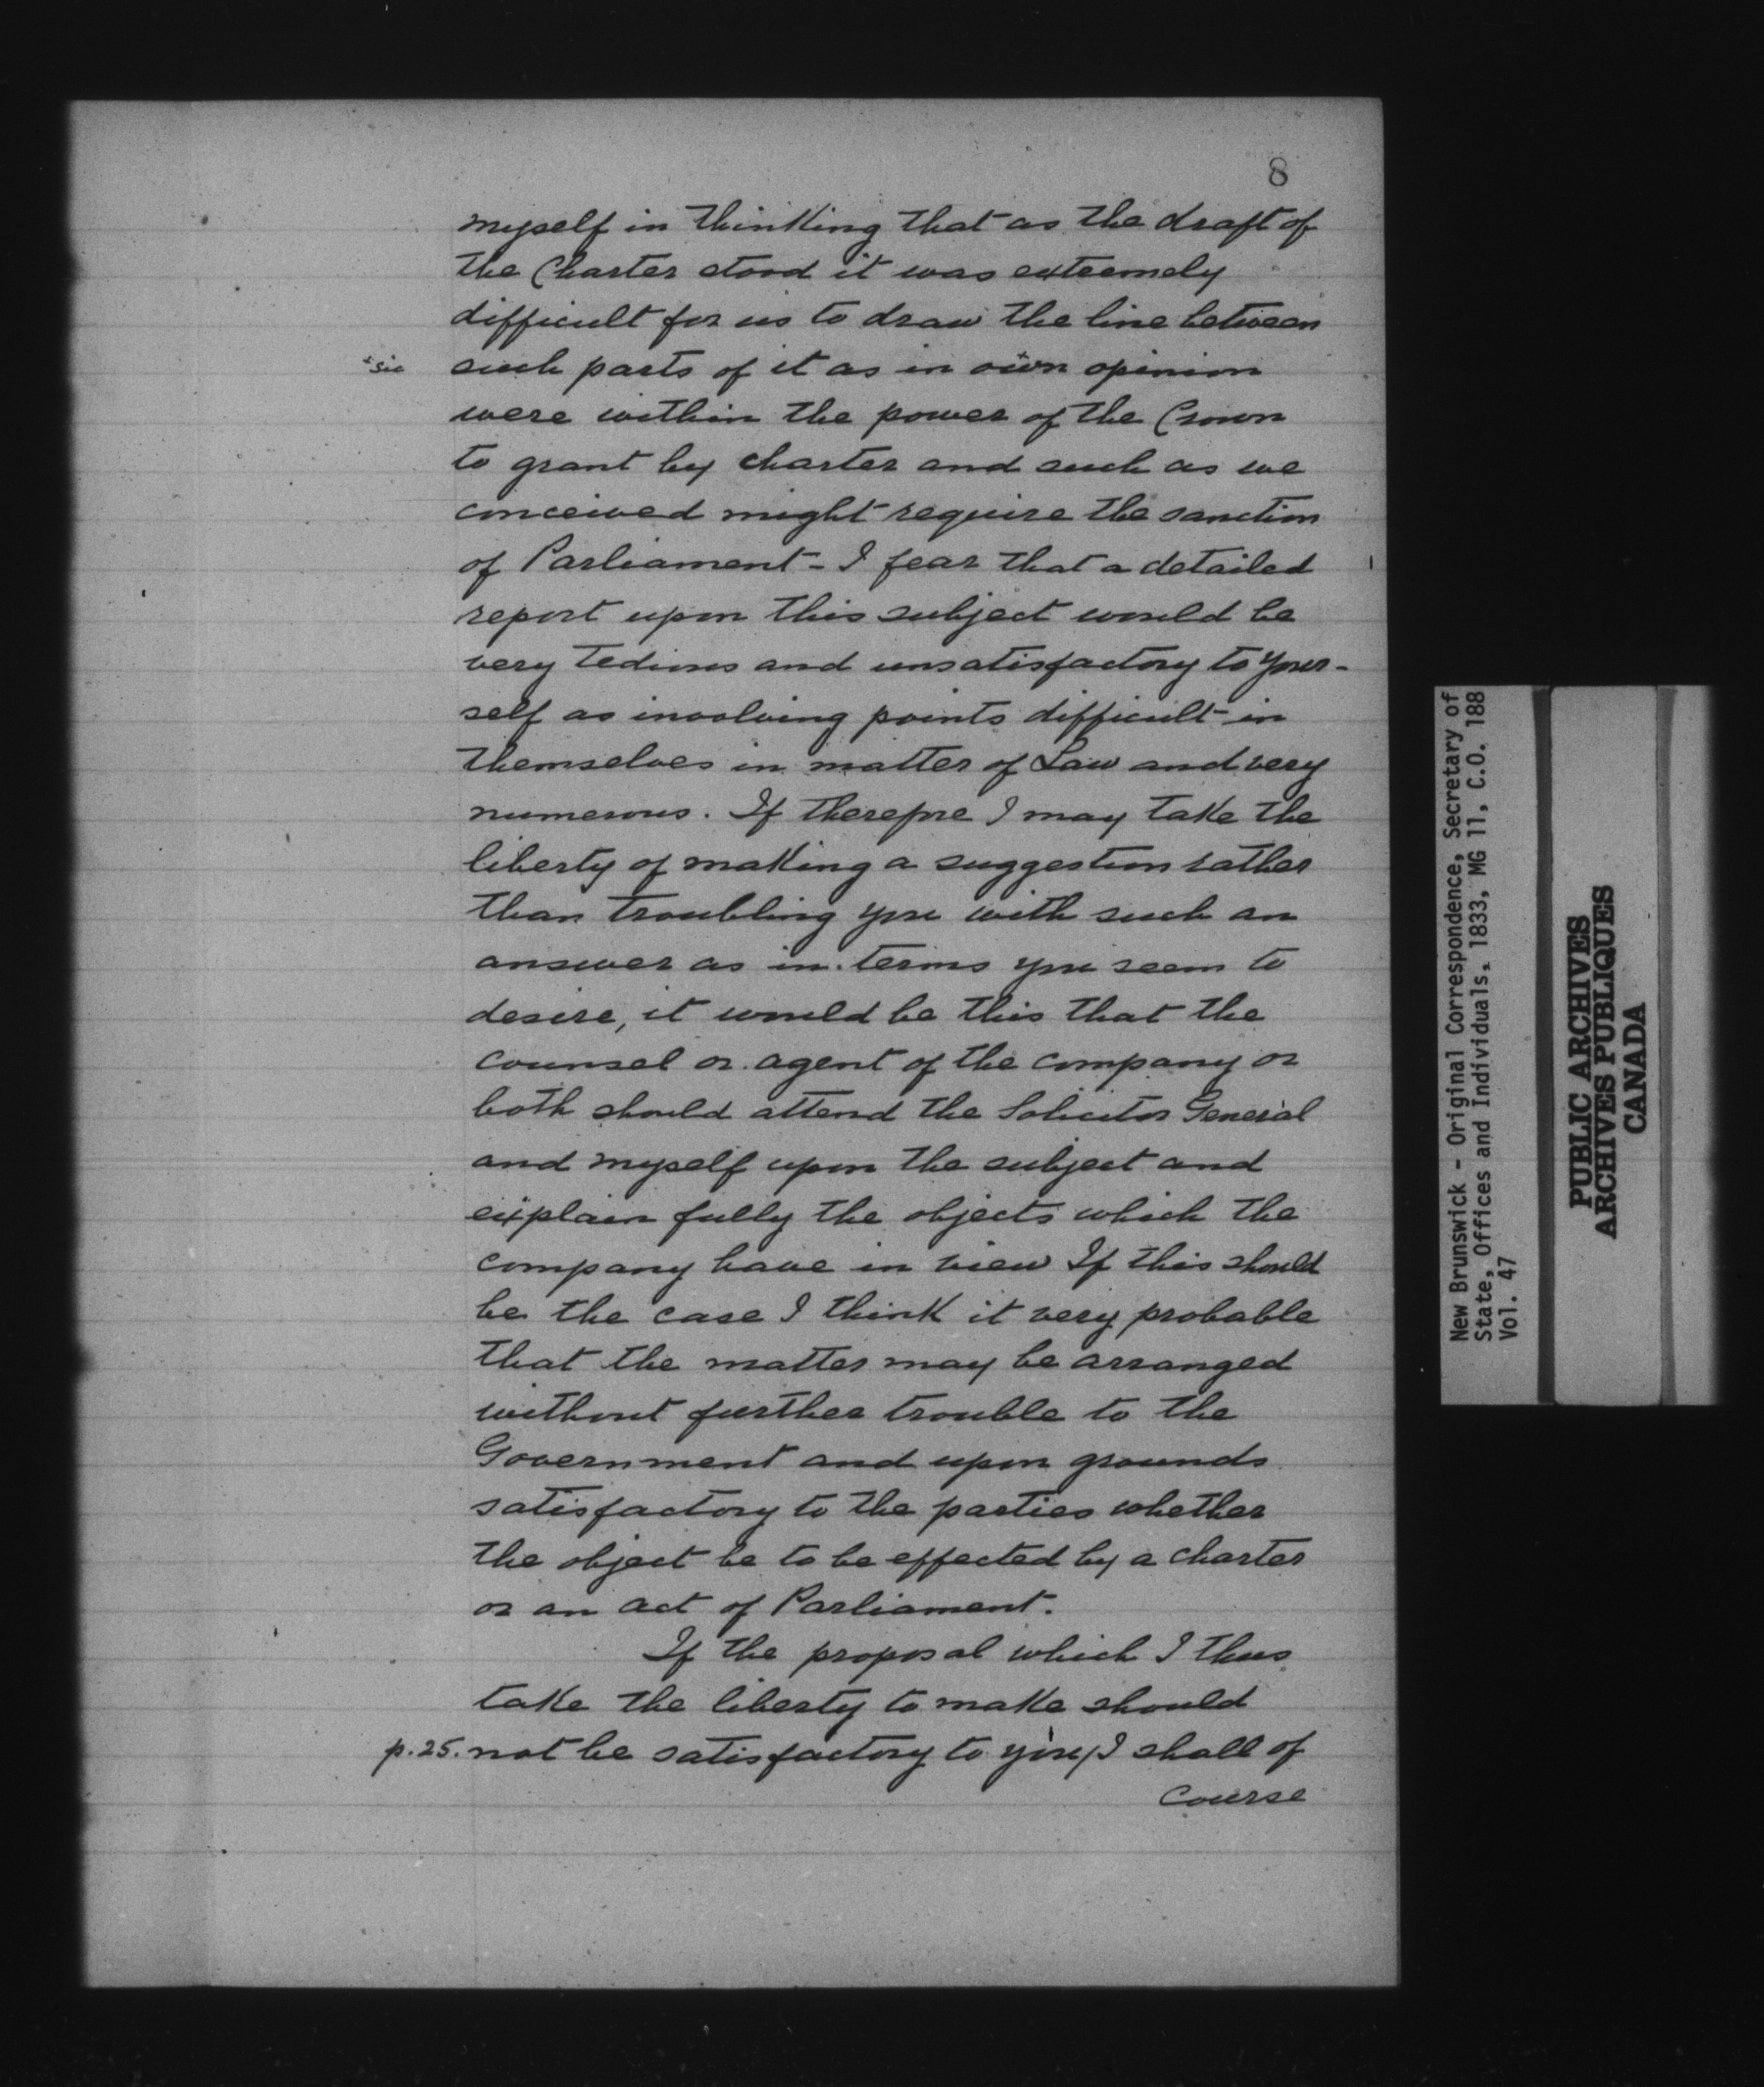 8
myself in thinking that as the draft of
the Charter stood it was extremely
difficult for us to draw the line between
+sic such parts of it as in own+ opinion
were within the power of the Crown
to grant by charter and such as we
conceived might require the sanction
of Parliament - I fear that a detailed
report upon this subject would be
very tedious and unsatisfactory to your-
self as involving points difficult in
themselves in matter of Law and very
numerous. If therefore I may take the
liberty of making a suggestion rather
than troubling you with such an
answer as in terms you seem to
desire, it would be this that the
counsel or agent of the company or
both should attend the Solicitor General
and myself upon the subject and
explain fully the objects which the
company have in view If this should
be the case I think it very probable
that the matter may be arranged
without further trouble to the
Government and upon grounds
satisfactory to the parties whether
the object be to be effected by a charter
or an act of Parliament.
If the proposal which I thus
take the liberty to make should
p.25. not be satisfactory to you, I shall of
course
New Brunswick - Original Correspondence, Secretary of
State, Offices and Individuals, 1833, MG 11, C.O. 188
Vol. 47
PUBLIC ARCHIVES
ARCHIVES PUBLIQUES
CANADA